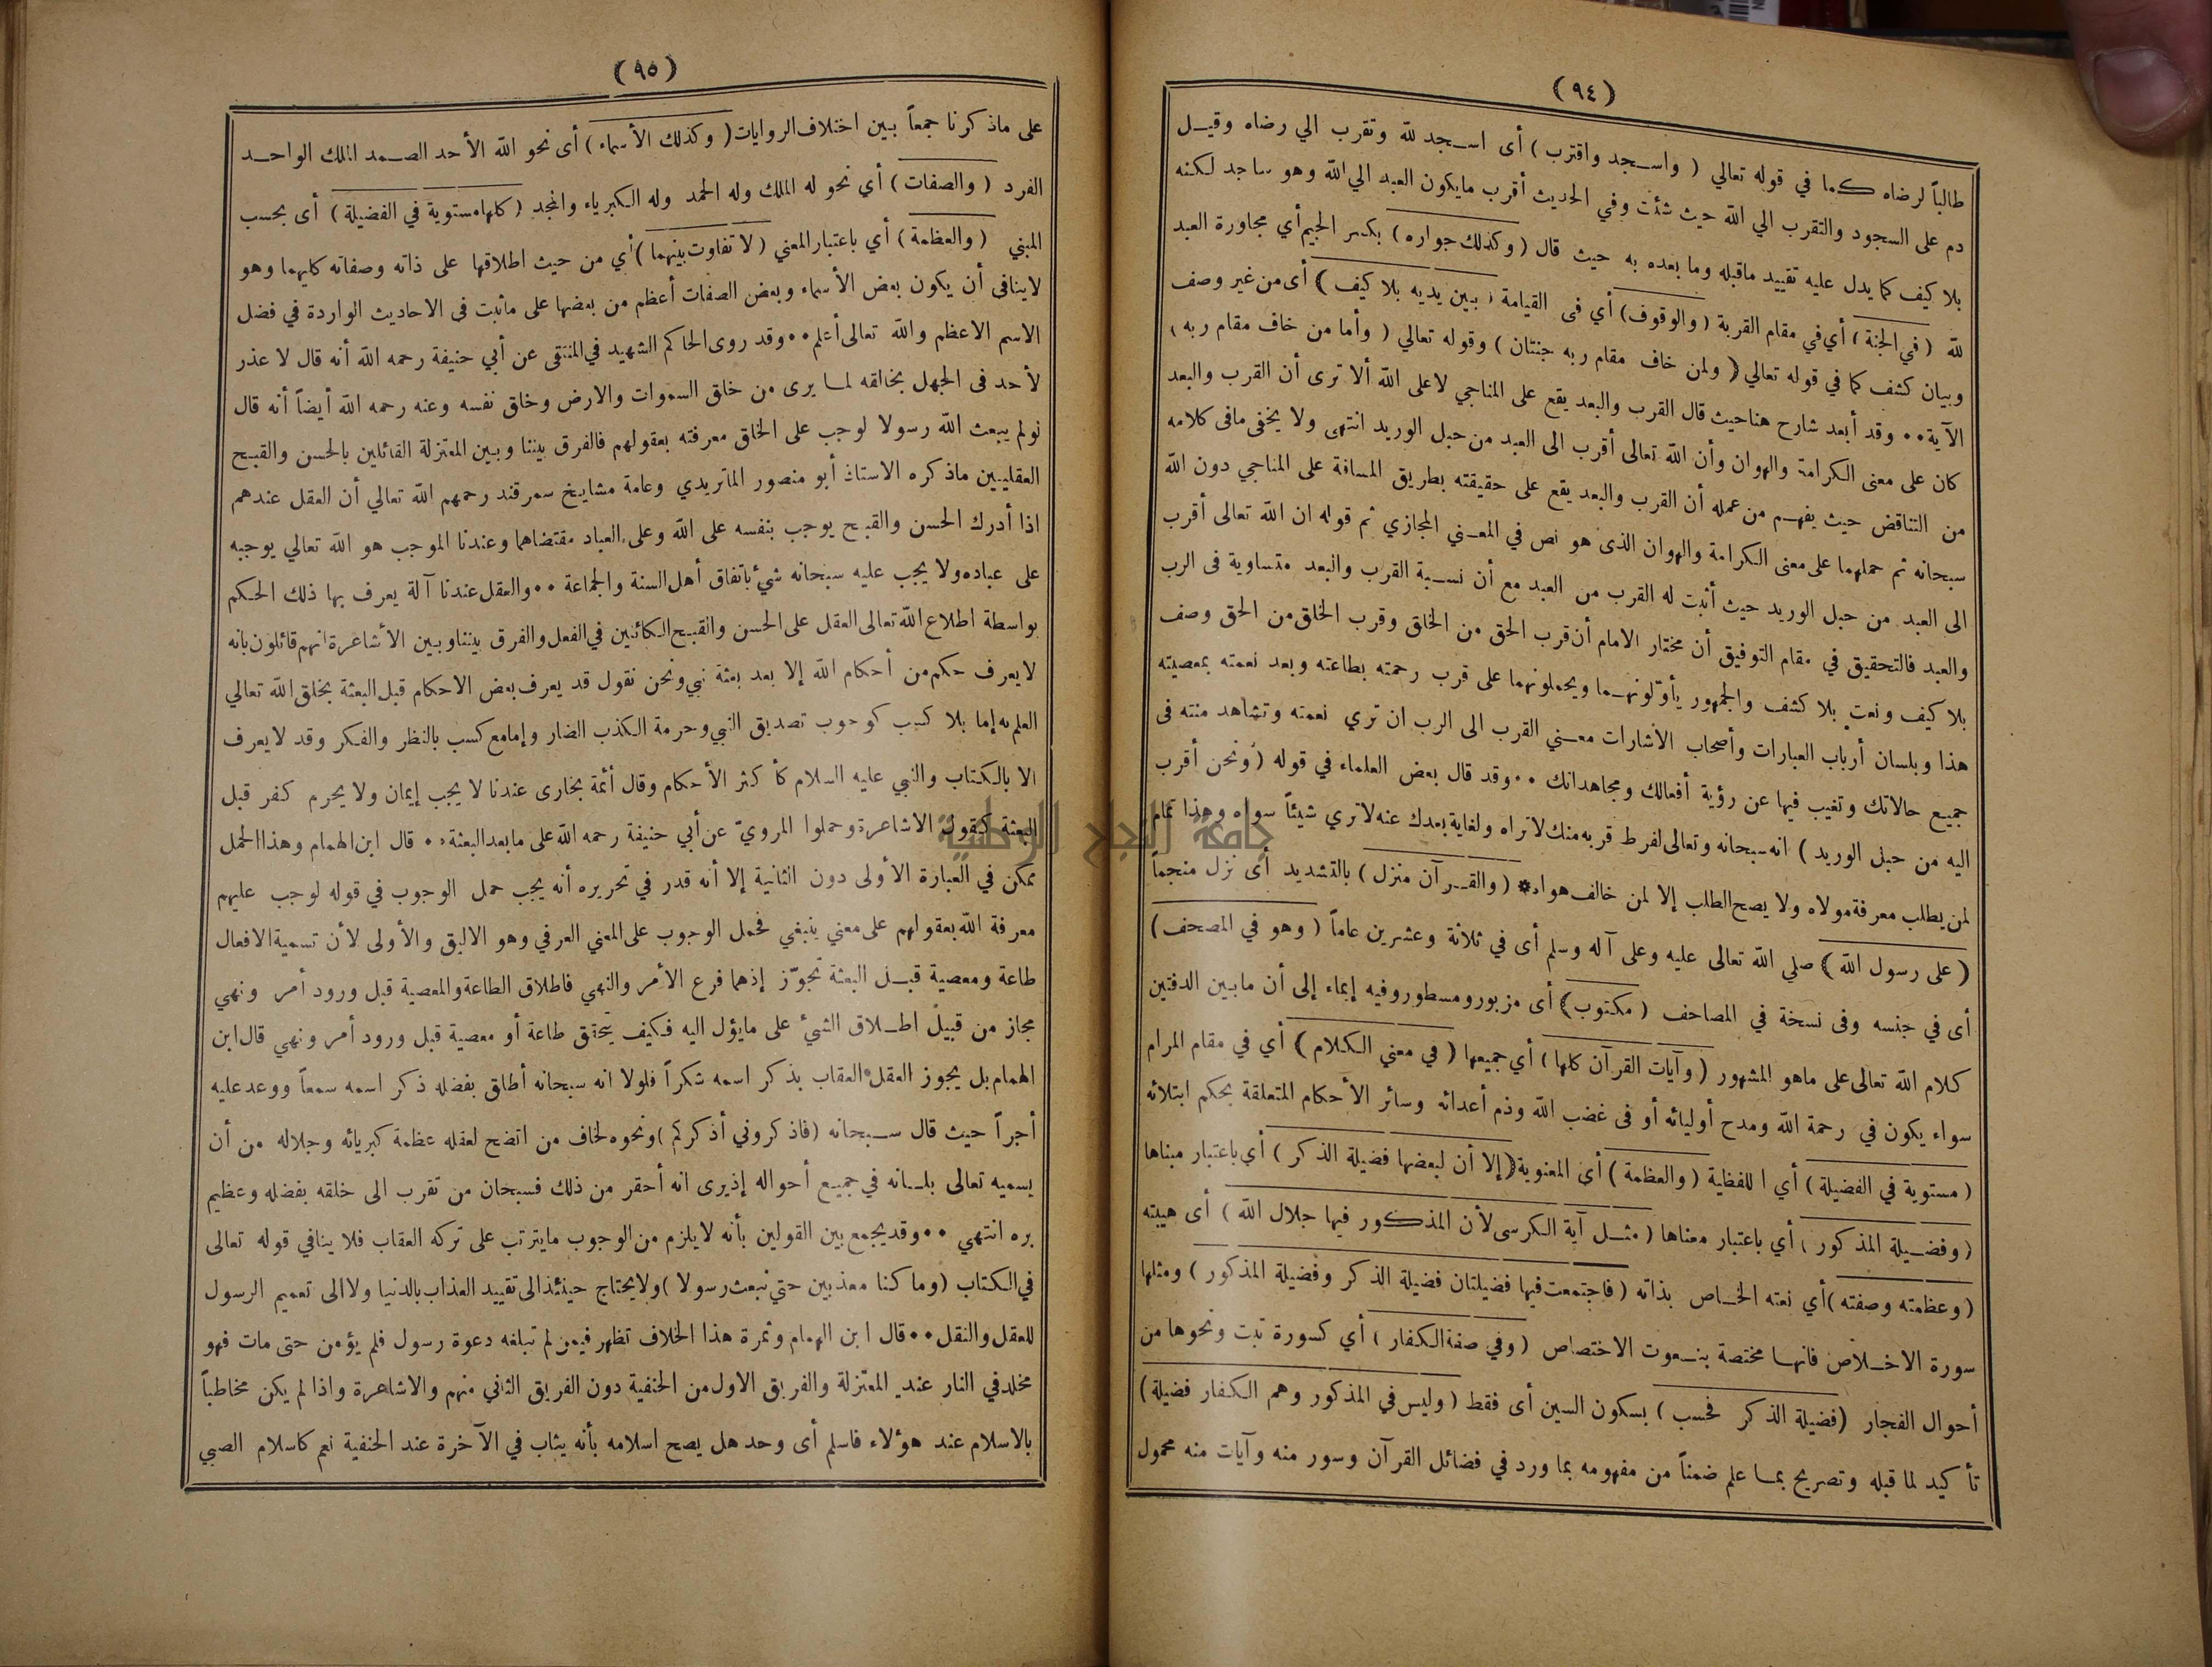 (٩٤)
طالباً لرضاه كما في قوله تعالي ( واسجد واقترب ) أى اسجد لله وتقرب الي رضاه وقيل
دم على السجود والتقرب الي الله حيث شئت وفي الحديث أقرب مايكون العبد الي الله وهو ساجد لكنه
بلا كيف كما يدل عليه تقييد ماقبله وما بعده به حيث قال ( وكذلك جواره ) بكسر الجيم أي مجاورة العبد
لله ( في الجنة ) أي في مقام القربة ( والوقوف ) أي فى القيامة ( بين يديه بلا كيف ) أى من غير وصف
وبيان كشف كما في قوله تعالي ( ولمن خاف مقام ربه جنتان ) وقوله تعالي ( وأما من خاف مقام ربه )
الآية ٠٠ وقد أبعد شارح هنا حيث قال القرب والبعد يقع على المناجي لا على الله ألا ترى أن القرب والبعد
كان على معنى الكرامة والهوان وأن الله تعالى أقرب الى العبد من حبل الوريد انتهى ولا يخفى مافى كلامه
من التناقض حيث يفهم من عمله أن القرب والبعد يقع على حقيقته بطريق المسافة على المناجي دون الله
سبحانه ثم حملهما على معنى الكرامة والهوان الذى هو نص في المعنى المجازي ثم قوله ان الله تعالى أقرب
الى العبد من حبل الوريد حيث أثبت له القرب من العبد مع أن نسبة القرب والبعد متساوية فى الرب
والعبد فالتحقيق في مقام التوفيق أن مختار الامام أن قرب الحق من الخلق وقرب الخلق من الحق وصف
بلا كيف ونعت بلا كشف والجمهور يأولونهما ويحملونهما على قرب رحمته بطاعته وبعد نعمته بمعصيته
هذا وبلسان أرباب العبارات وأصحاب الاشارات معني القرب الى الرب ان تري نعمته وتشاهد منته فى
جميع حالاتك وتغيب فيها عن رؤية أفعالك ومجاهداتك ٠٠ وقد قال بعض العلماء في قوله ( ونحن أقرب
اليه من حبل الوريد ) انه سبحانه وتعالى لفرط قربه منك لاتراه ولغاية بعدك عنه لاتري شيئاً سواه وهذا تمام
لمن يطلب معرفة مولاه ولا يصح الطلب إلا لمن خالف هواه* ( والقرآن منزل ) بالتشديد أى نزل منجماً
( على رسول الله ) صلي الله تعالى عليه وعلى آله وسلم أى في ثلاثة وعشرين عاماً ( وهو في المصحف )
أى في جنسه وفى نسخة في المصاحف ( مكتوب ) أى مزبور ومسطور وفيه إيماء إلى أن مابين الدفتين
كلام الله تعالى على ماهو المشهور ( وآيات القرآن كلها ) أي جميعها ( في معني الكلام ) أي في مقام المرام
سواء يكون في رحمة الله ومدح أوليائه أو فى غضب الله وذم أعدائه وسائر الأحكام المتعلقة بحكم ابتلائه
( مستوية في الفضيلة ) أي اللفظية ( والعظمة ) أي المعنوية ( إلا أن لبعضها فضيلة الذكر ) أي باعتبار مبناها
( وفضيلة المذكور ) أي باعتبار معناها ( مثل آية الكرسى لأن المذكور فيها جلال الله ) أى هيبته
( وعظمته وصفته ) أي نعته الخاص بذاته ( فاجتمعت فيها فضيلتان فضيلة الذكر وفضيلة المذكور ) ومثلها
سورة الاخلاص فانها مختصة بنعوت الاختصاص ( وفي صفة الكفار ) أي كسورة تبت ونحوها من
أحوال الفجار ( فضيلة الذكر فحسب ) بسكون السين أى فقط ( وليس في المذكور وهم الكفار فضيلة )
تأكيد لما قبله وتصريح بما علم ضمناً من مفهومه بما ورد في فضائل القرآن وسور منه وآيات منه محمول
(٩٥)
على ماذكرنا جمعاً بين اختلاف الروايات ( وكذلك الأسماء ) أى نحو الله الأحد الصمد الملك الواحد
الفرد ( والصفات ) أي نحو له الملك وله الحمد وله الكبرياء والمجد ( كلها مستوية في الفضيلة ) أى بحسب
المبني ( والعظمة ) أي باعتبار المعني ( لا تفاوت بينهما ) أي من حيث اطلاقها على ذاته وصفاته كليهما وهو
لاينافى أن يكون بعض الأسماء وبعض الصفات أعظم من بعضها على ماثبت فى الاحاديث الواردة في فضل
الاسم الاعظم والله تعالى أعلم ٠٠ وقد روى الحاكم الشهيد في المنتقى عن أبي حنيفة رحمه الله أنه قال لا عذر
لأحد فى الجهل بخالقه لما يرى من خلق السموات والارض وخلق نفسه وعنه رحمه الله أيضاً أنه قال
لولم يبعث الله رسولا لوجب على الخلق معرفته بعقولهم فالفرق بيننا وبين المعتزلة القائلين بالحسن والقبح
العقليين ماذكره الاستاذ أبو منصور الماتريدي وعامة مشايخ سمرقند رحمهم الله تعالي أن العقل عندهم
اذا أدرك الحسن والقبح يوجب بنفسه على الله وعلى العباد مقتضاهما وعندنا الموجب هو الله تعالي يوجبه
على عباده ولا يجب عليه سبحانه شيء باتفاق أهل السنة والجماعة ٠٠ والعقل عندنا آلة يعرف بها ذلك الحكم
بواسطة اطلاع الله تعالى العقل على الحسن والقبح الكائنين في الفعل والفرق بيننا وبين الأشاعرة انهم قائلون بانه
لايعرف حكم من أحكام الله إلا بعد بعثة نبي ونحن نقول قد يعرف بعض الاحكام قبل البعثة بخلق الله تعالي
العلم به إما بلا كسب كوجوب تصديق النبي وحرمة الكذب الضار وإما مع كسب بالنظر والفكر وقد لايعرف
الا بالكتاب والنبي عليه السلام كأكثر الأحكام وقال أئمة بخارى عندنا لا يجب إيمان ولا يحرم كفر قبل
البعثة كقول الاشاعرة وحملوا المرويّ عن أبي حنيفة رحمه الله على مابعد البعثة ٠٠ قال ابن الهمام وهذا الحمل
ممكن في العبارة الأولى دون الثانية إلا أنه قدر في تحريره أنه يجب حمل الوجوب في قوله لوجب عليهم
معرفة الله بعقولهم على معني ينبغي فحمل الوجوب على المعني العرفي وهو الاليق والأولى لأن تسمية الافعال
طاعة ومعصية قبل البعثة تجوّز إذهما فرع الأمر والنهي فاطلاق الطاعة والمعصية قبل ورود أمر ونهي
مجاز من قبيل اطلاق الشيء على مايؤل اليه فكيف يتحقق طاعة أو معصية قبل ورود أمر ونهي قال ابن
الهمام بل يجوز العقل العقاب بذكر اسمه شكراً فلولا انه سبحانه أطلق بفضله ذكر اسمه سمعاً ووعد عليه
أجراً حيث قال سبحانه ( فاذكروني أذكركم ) ونحوه لخاف من اتضح لعقله عظمة كبريائه وجلاله من أن
يسميه تعالى بلسانه في جميع أحواله إذيرى انه أحقر من ذلك فسبحان من تقرب الى خلقه بفضله وعظيم
بره انتهي ٠٠ وقد يجمع بين القولين بأنه لايلزم من الوجوب مايترتب على تركه العقاب فلا ينافي قوله تعالى
في الكتاب ( وما كنا معذبين حتي نبعث رسولا ) ولايحتاج حينئذ الى تقييد العذاب بالدنيا ولا الى تعميم الرسول
للعقل والنقل ٠٠ قال ابن الهمام وثمرة هذا الخلاف تظهر فيمن لم تبلغه دعوة رسول فلم يؤمن حتى مات فهو
مخلد في النار عند المعتزلة والفريق الاول من الحنفية دون الفريق الثاني منهم والاشاعرة واذا لم يكن مخاطباً
بالاسلام عند هؤلاء فاسلم أى وحد هل يصح اسلامه بأنه يثاب في الآخرة عند الحنفية نعم كاسلام الصبي
جامعة النجاح الوطنية